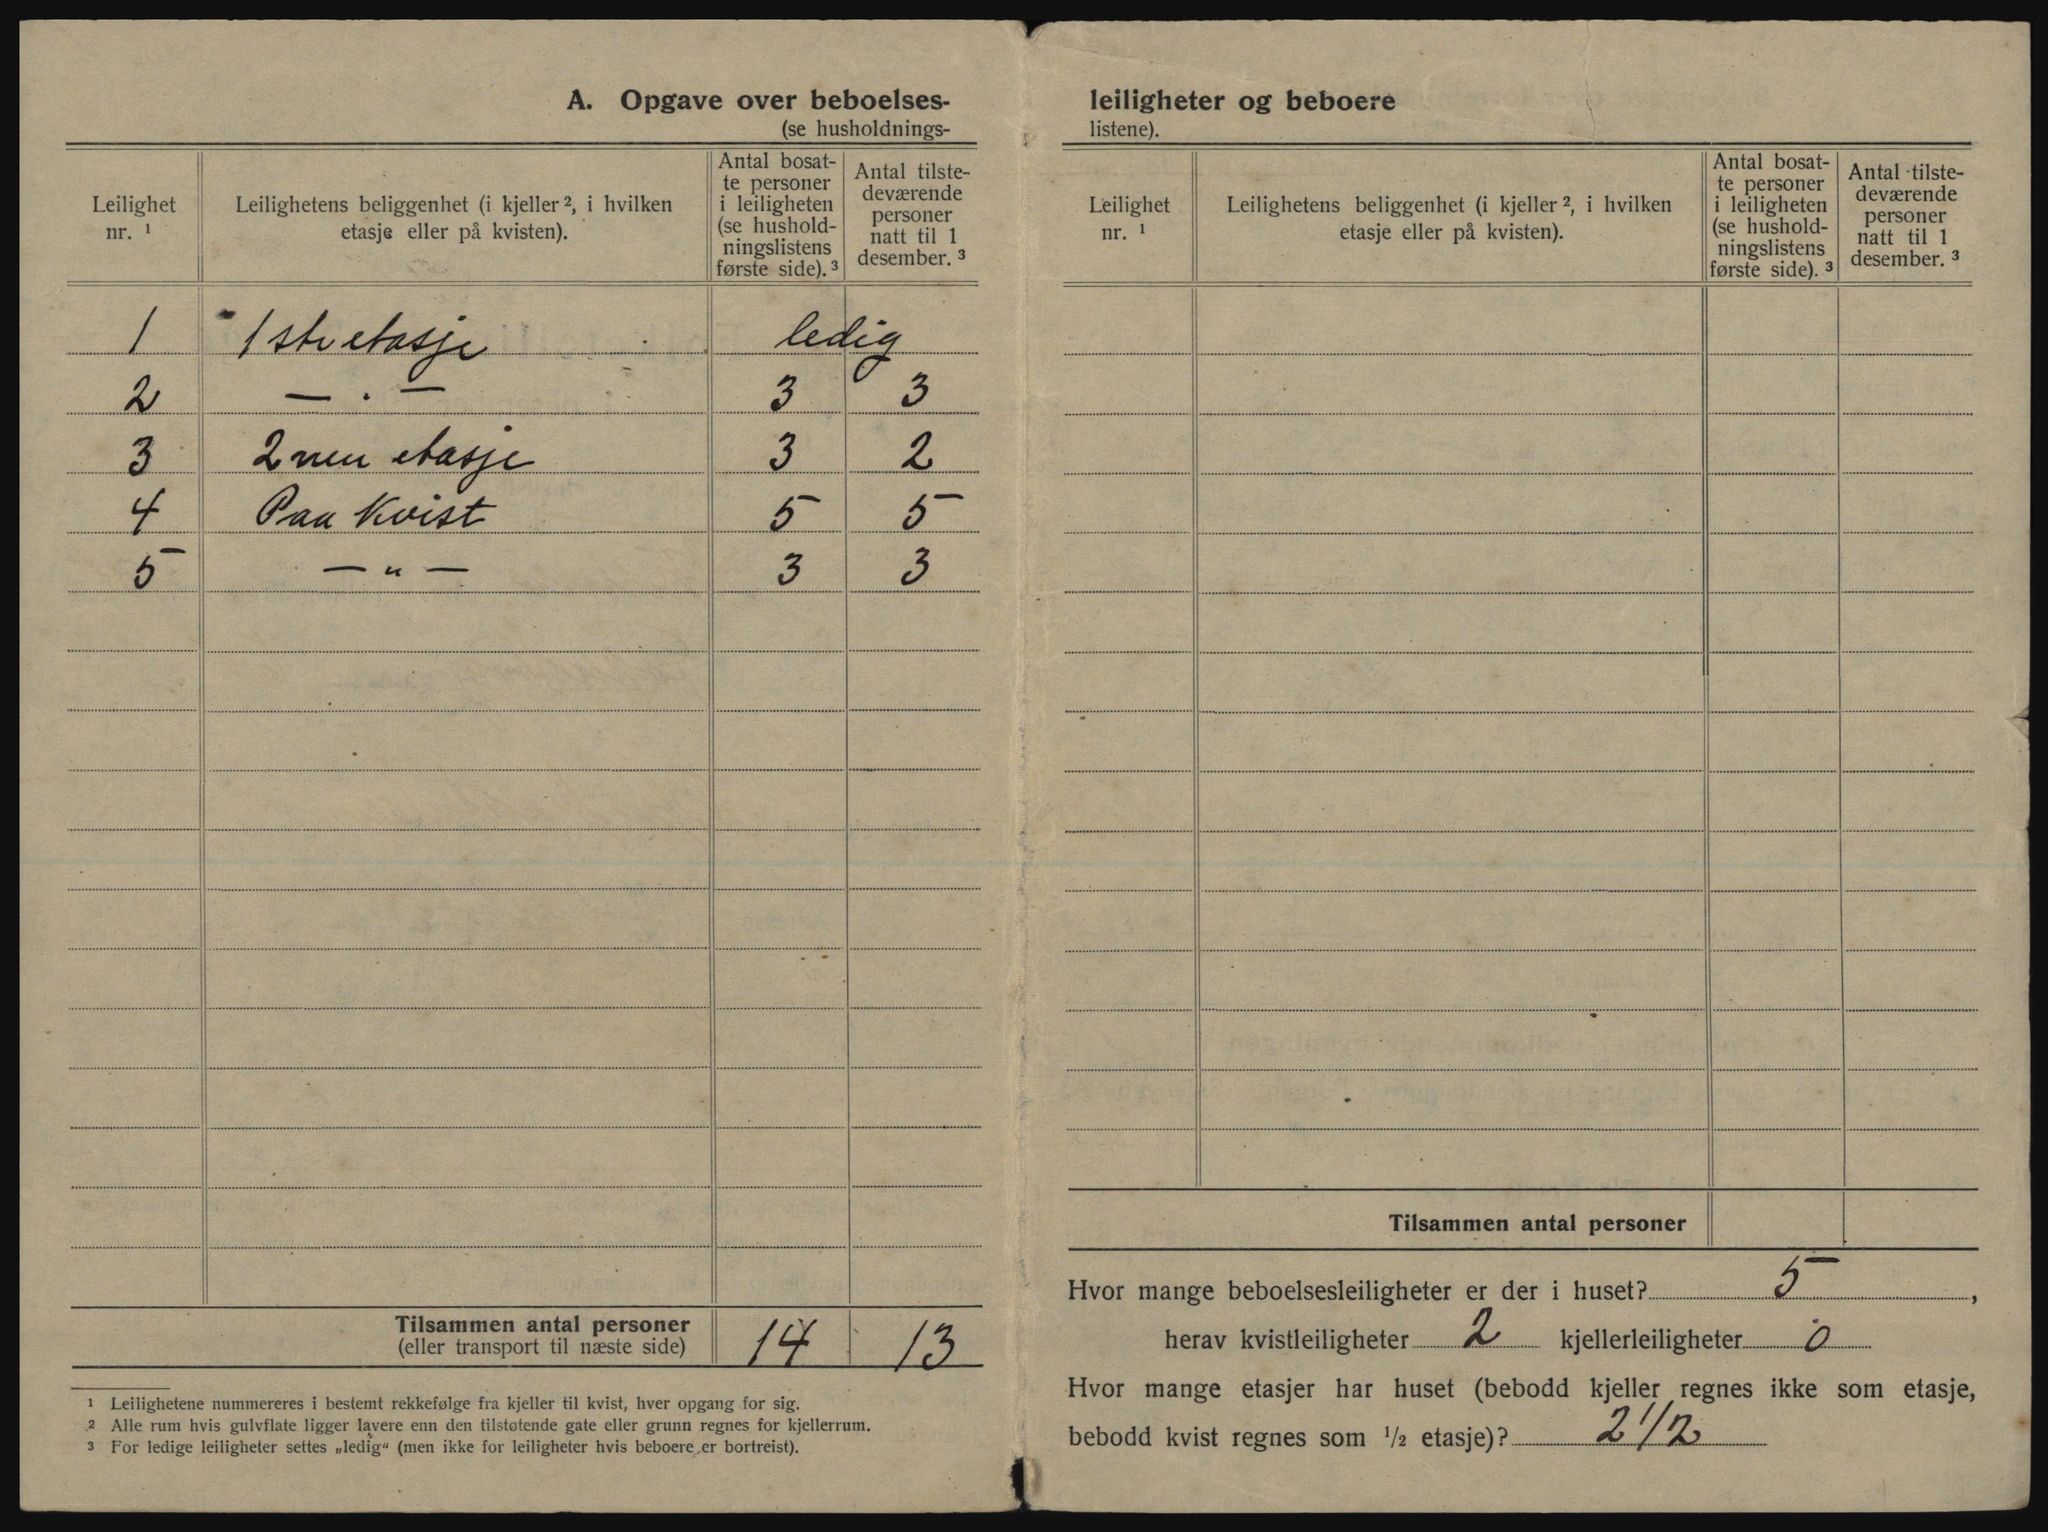 A. Opgave over beboelses-
(se husholdnings-
Leilighet nr. ¹
Leilighetens beliggenhet (i kjeller ², i hvilken etasje eller på kvisten).
Antal bosat-
te personer
i leiligheten
(se hushold-
ningslistens
første side). ³
Antal tilste-
deværende
personer
natt til 1
desember. ³
1 1ste etasje ledig
2 — . — 3 3
3 2nen etasje 3 2
4 Paa Kvist 5 5
5 — „ — 3 3
Tilsammen antal personer 14 13
(eller transport til næste side)
¹ Leilighetene nummereres i bestemt rekkefølge fra kjeller til kvist, hver opgang for sig.
² Alle rum hvis gulvflate ligger lavere enn den tilstøtende gate eller grunn regnes for kjellerrum.
³ For ledige leiligheter settes „ledig“ (men ikke for leiligheter hvis beboere er bortreist).
leiligheter og beboere
listene).
Leilighet nr. ¹
Leilighetens beliggenhet (i kjeller ², i hvilken etasje eller på kvisten).
Antal bosat-
te personer
i leiligheten
(se hushold-
ningslistens
første side). ³
Antal tilste-
deværende
personer
natt til 1
desember. ³
Tilsammen antal personer
Hvor mange beboelsesleiligheter er der i huset? 5 ,
herav kvistleiligheter 2 kjellerleiligheter 0
Hvor mange etasjer har huset (bebodd kjeller regnes ikke som etasje,
bebodd kvist regnes som ½ etasje)? 2 1/2